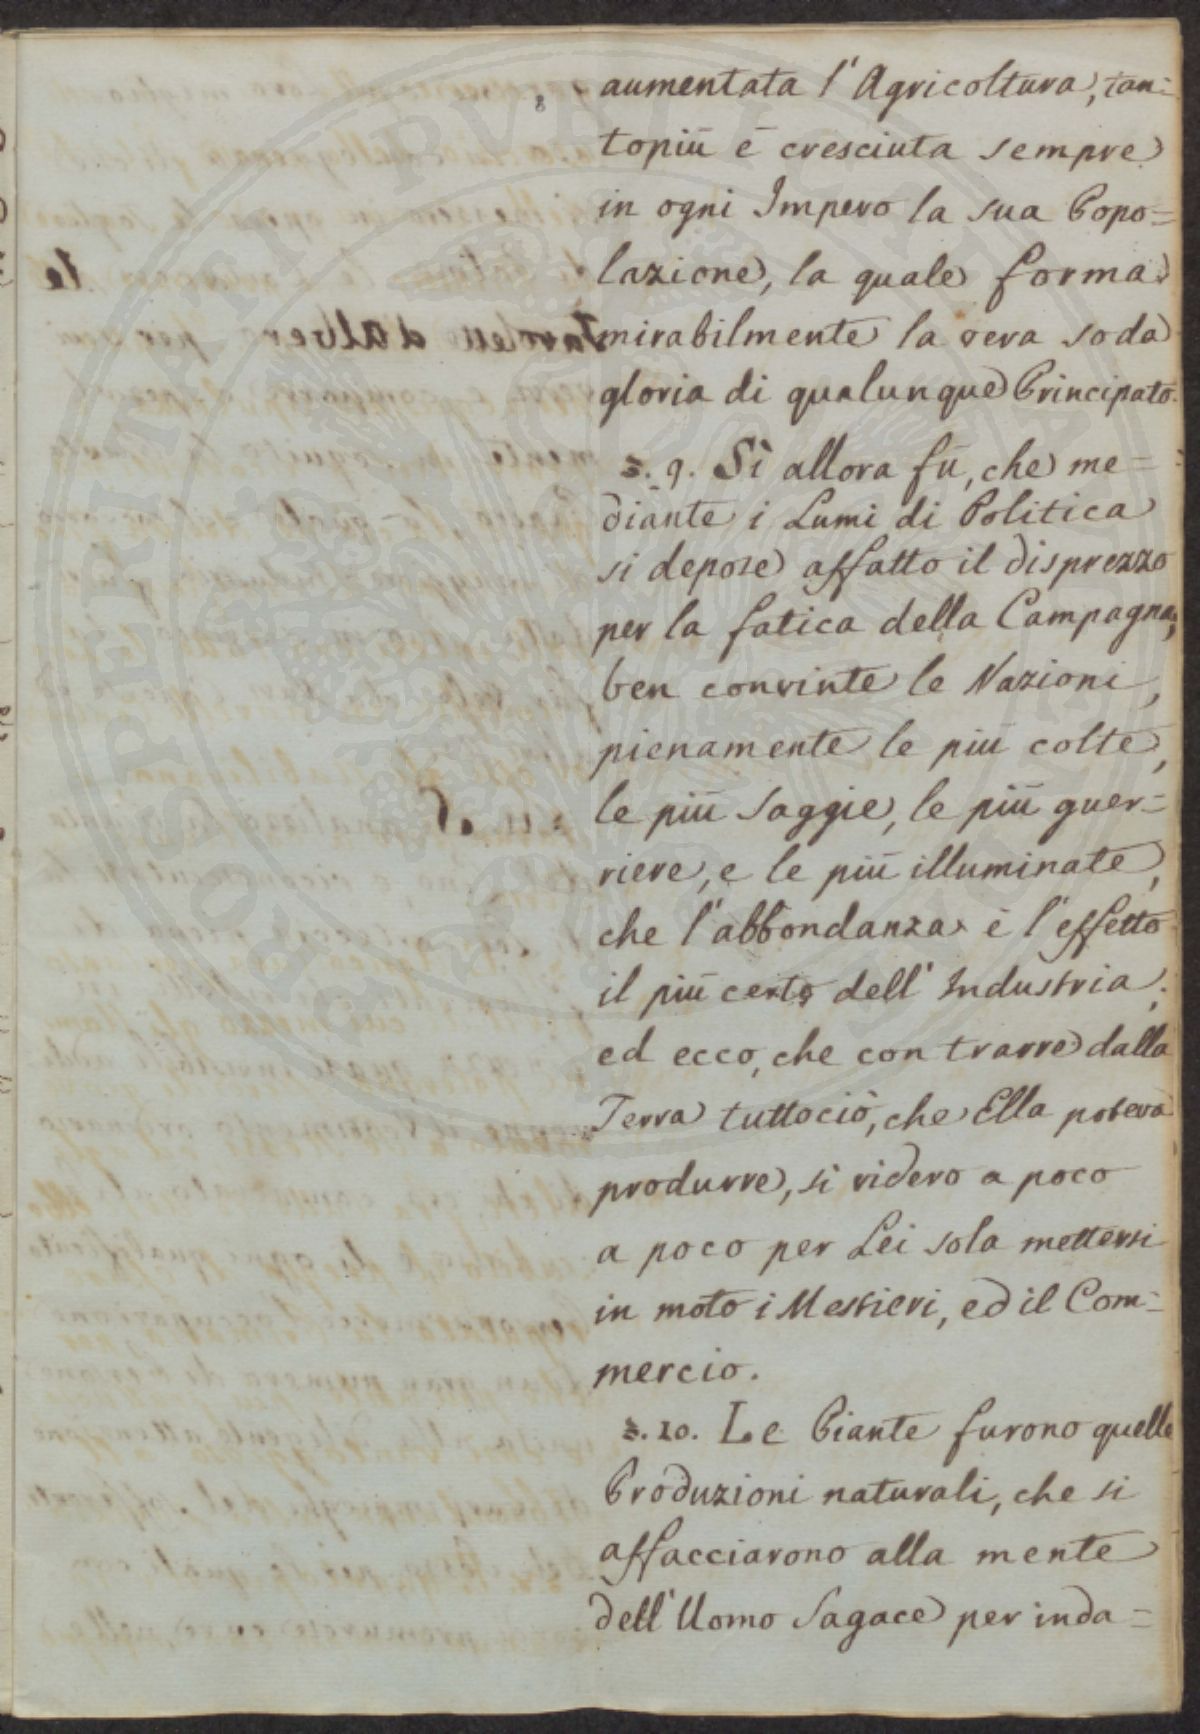 aumentata l'Agricoltura, tan=
topiū ē cresciuta sempre
in ogni Impero la sua Popo=
lazione, la quale forma
mirabilmente la vera soda
gloria di qualunque Principato.
§. 9. Sì allora fū, che me=
diante i Lumi di Politica
si depose affatto il disprezzo
per la fatica della Campagna,
ben convinte le Nazioni,
pienamente le piū colte,
le piū saggie, le piū guer=
riere, e le piū illuminate,
che l'abbondanza è l'effetto
il piū certo dell'Industria;
ed ecco, che con trarre dalla
Terra tuttociò, che Ella poteva
produrre, si videro a poco
a poco per Lei sola mettersi
in moto i Mestieri, ed il Com=
mercio.
§. 10. Le Piante furono quelle
Produzioni naturali, che si
affacciarono alla mente
dell'Uomo Sagace per inda=
PROSPERITATI PVBLICAE